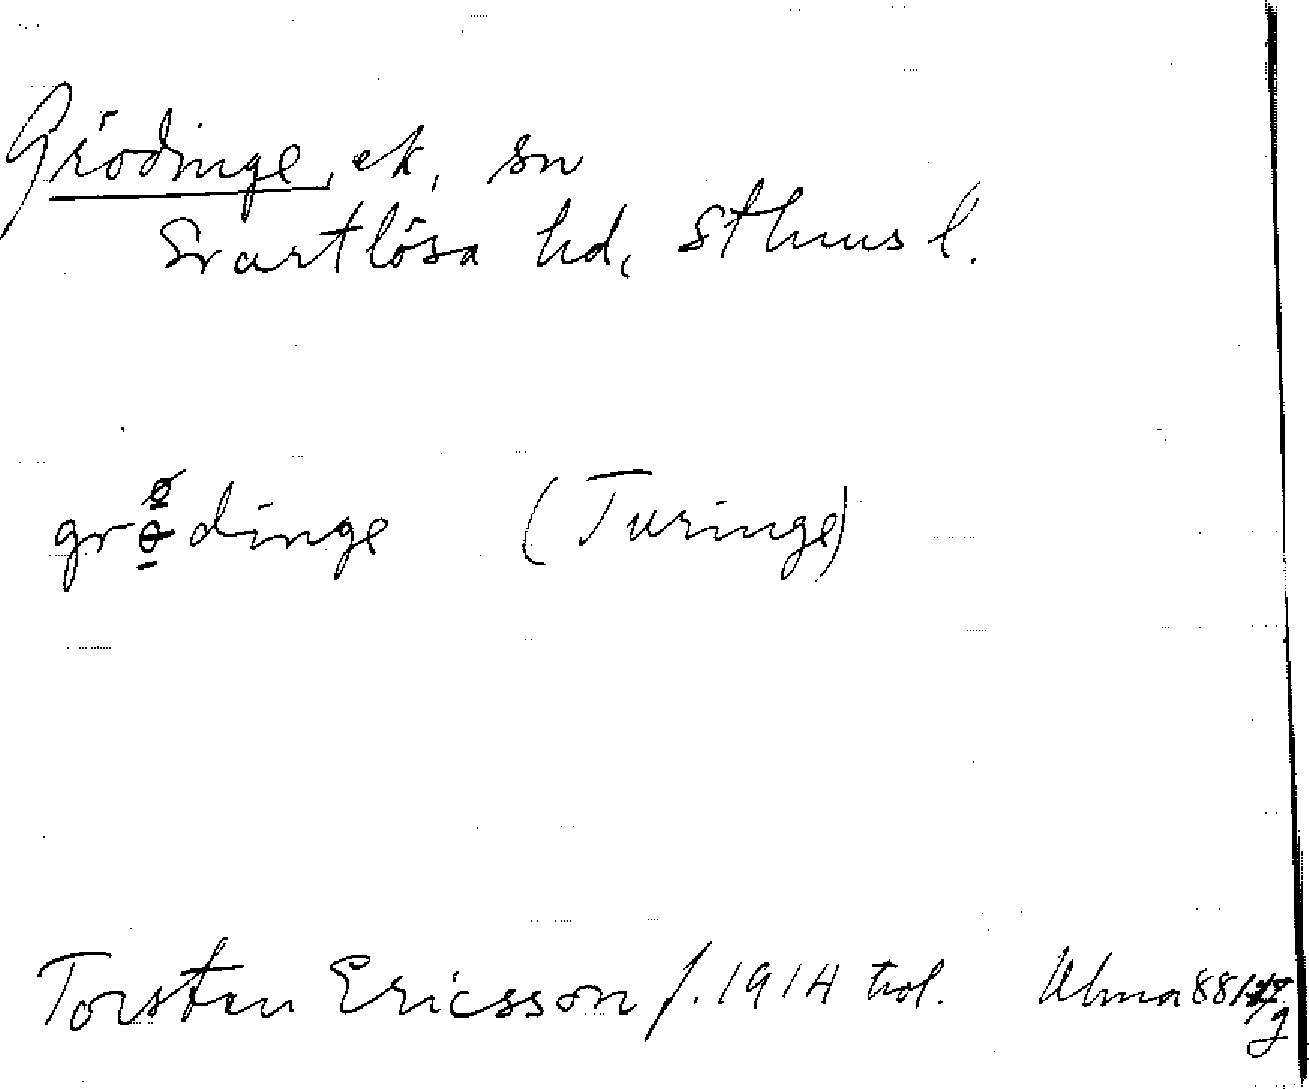 Grödinge, ek, sn
Svartlösa hd, Sthms l.
dinge (Turinge)
Torsten Ericsson f. 1914 trol.